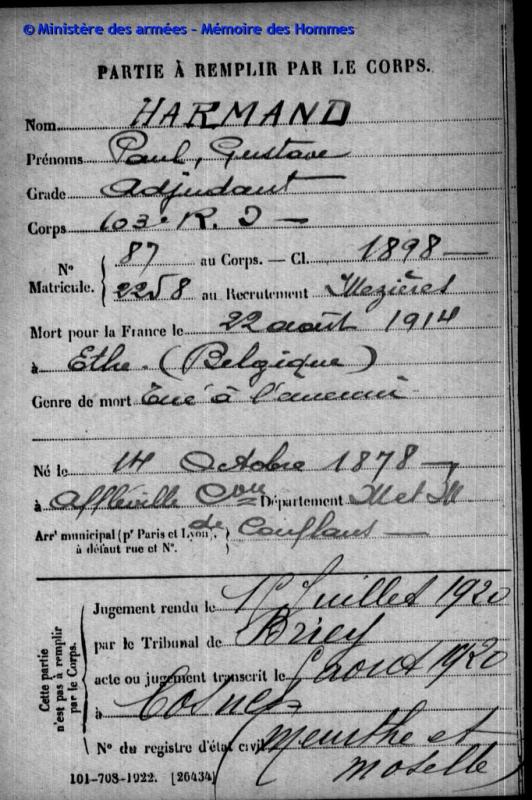 © Ministère des armées - Mémoire des Hommes
PARTIE À REMPLIR PAR LE CORPS.
Nom HARMAND
Prénoms Paul, Gustave
Grade Adjudant
Corps 103e R. I
N° Matricule. 87 au Corps. — Cl. 1898
2258 au Recrutement Mezières
Mort pour la France le 22 août 1914
à Ethe. (Belgique)
Genre de mort Tué à l'ennemi
Né le 14 Octobre 1878
à Affléville Con Département M et M
Arrt municipal (pr Paris et Lyon), à défaut rue et N°. de Conflans
Cette partie n'est pas à remplir par le Corps.
Jugement rendu le Juillet 1920
par le Tribunal de Briey
acte ou jugement transcrit le août 1920
à Cosnes
N° du registre d'état civil (Meurthe et
moselle
101-708-1922. [26434]